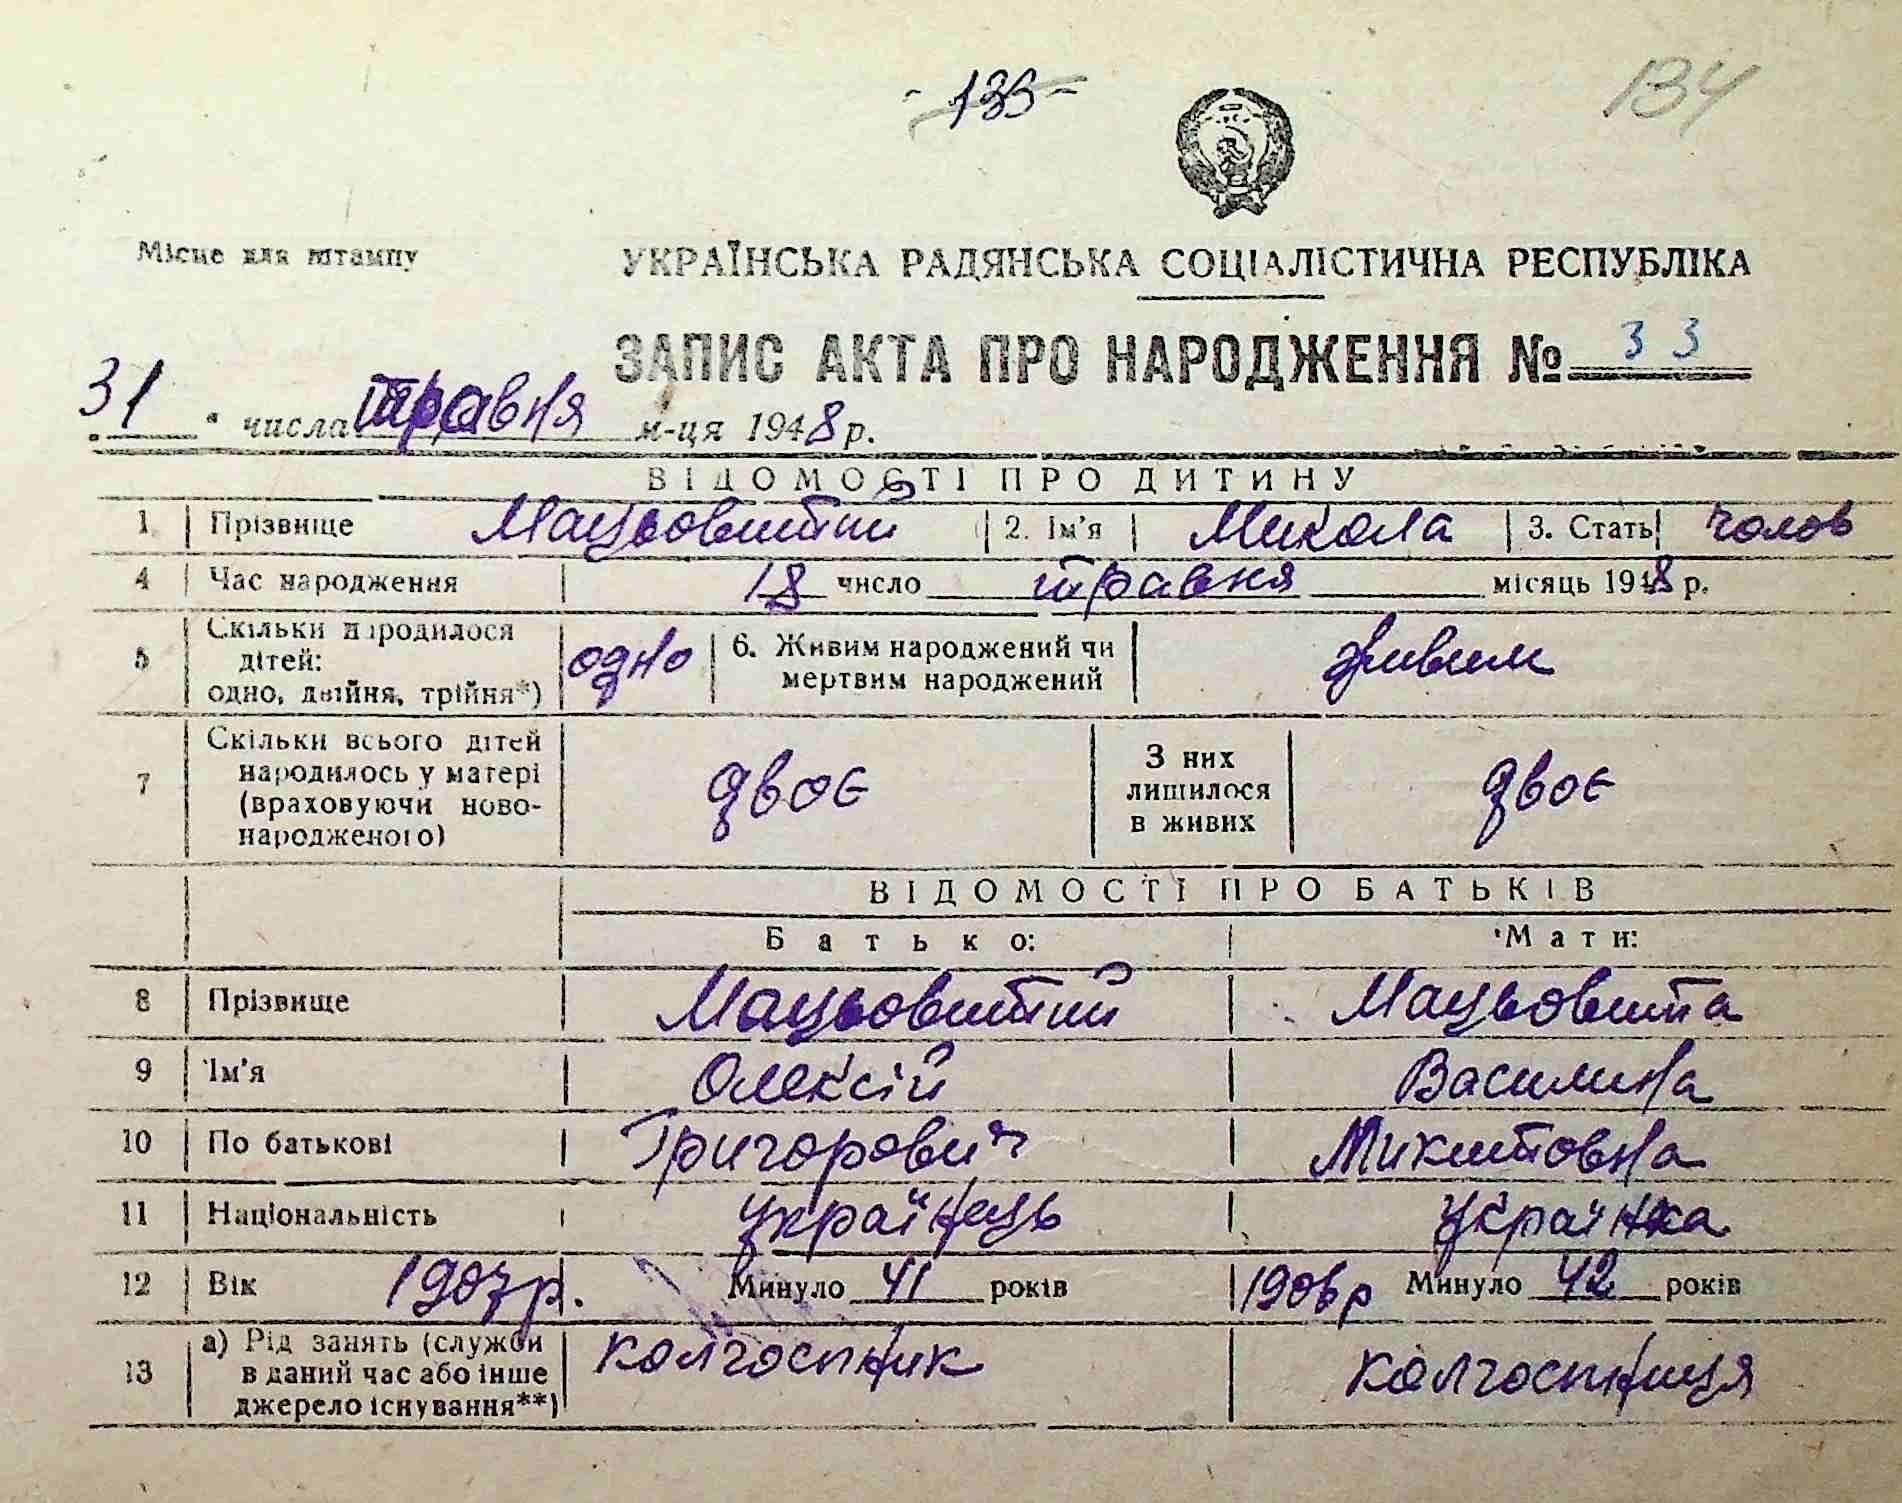 - 133 -
134
Місце для штампу
УКРАЇНСЬКА РАДЯНСЬКА СОЦІАЛІСТИЧНА РЕСПУБЛІКА
ЗАПИС АКТА ПРО НАРОДЖЕННЯ № 33
„31“ числа травня м-ця 1948 р.
ВІДОМОСТІ ПРО ДИТИНУ
1 Прізвище Мацьовитий 2. Ім'я Микола 3. Стать чолов
4 Час народження 18 число травня місяць 1948 р.
5 Скільки народилося
дітей:
одно, двійня, трійня*) одно 6. Живим народжений чи
мертвим народжений живим
7 Скільки всього дітей
народилось у матері
(враховуючи ново-
народженого) двоє З них
лишилося
в живих двоє
ВІДОМОСТІ ПРО БАТЬКІВ
Батько: Мати:
8 Прізвище Мацьовитий Мацьовита
9 Ім'я Олексій Василина
10 По батькові Григорович Микитовна
11 Національність українець українка
12 Вік 1907 р. Минуло 41 років 1906 р Минуло 42 років
13 а) Рід занять (служби
в даний час або інше
джерело існування**) колгоспник колгоспниця